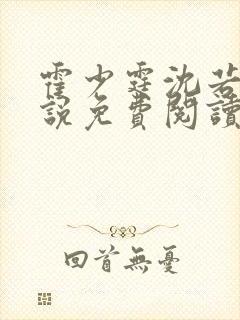 霍少霆沈若
說免費閱讀
回首無憂